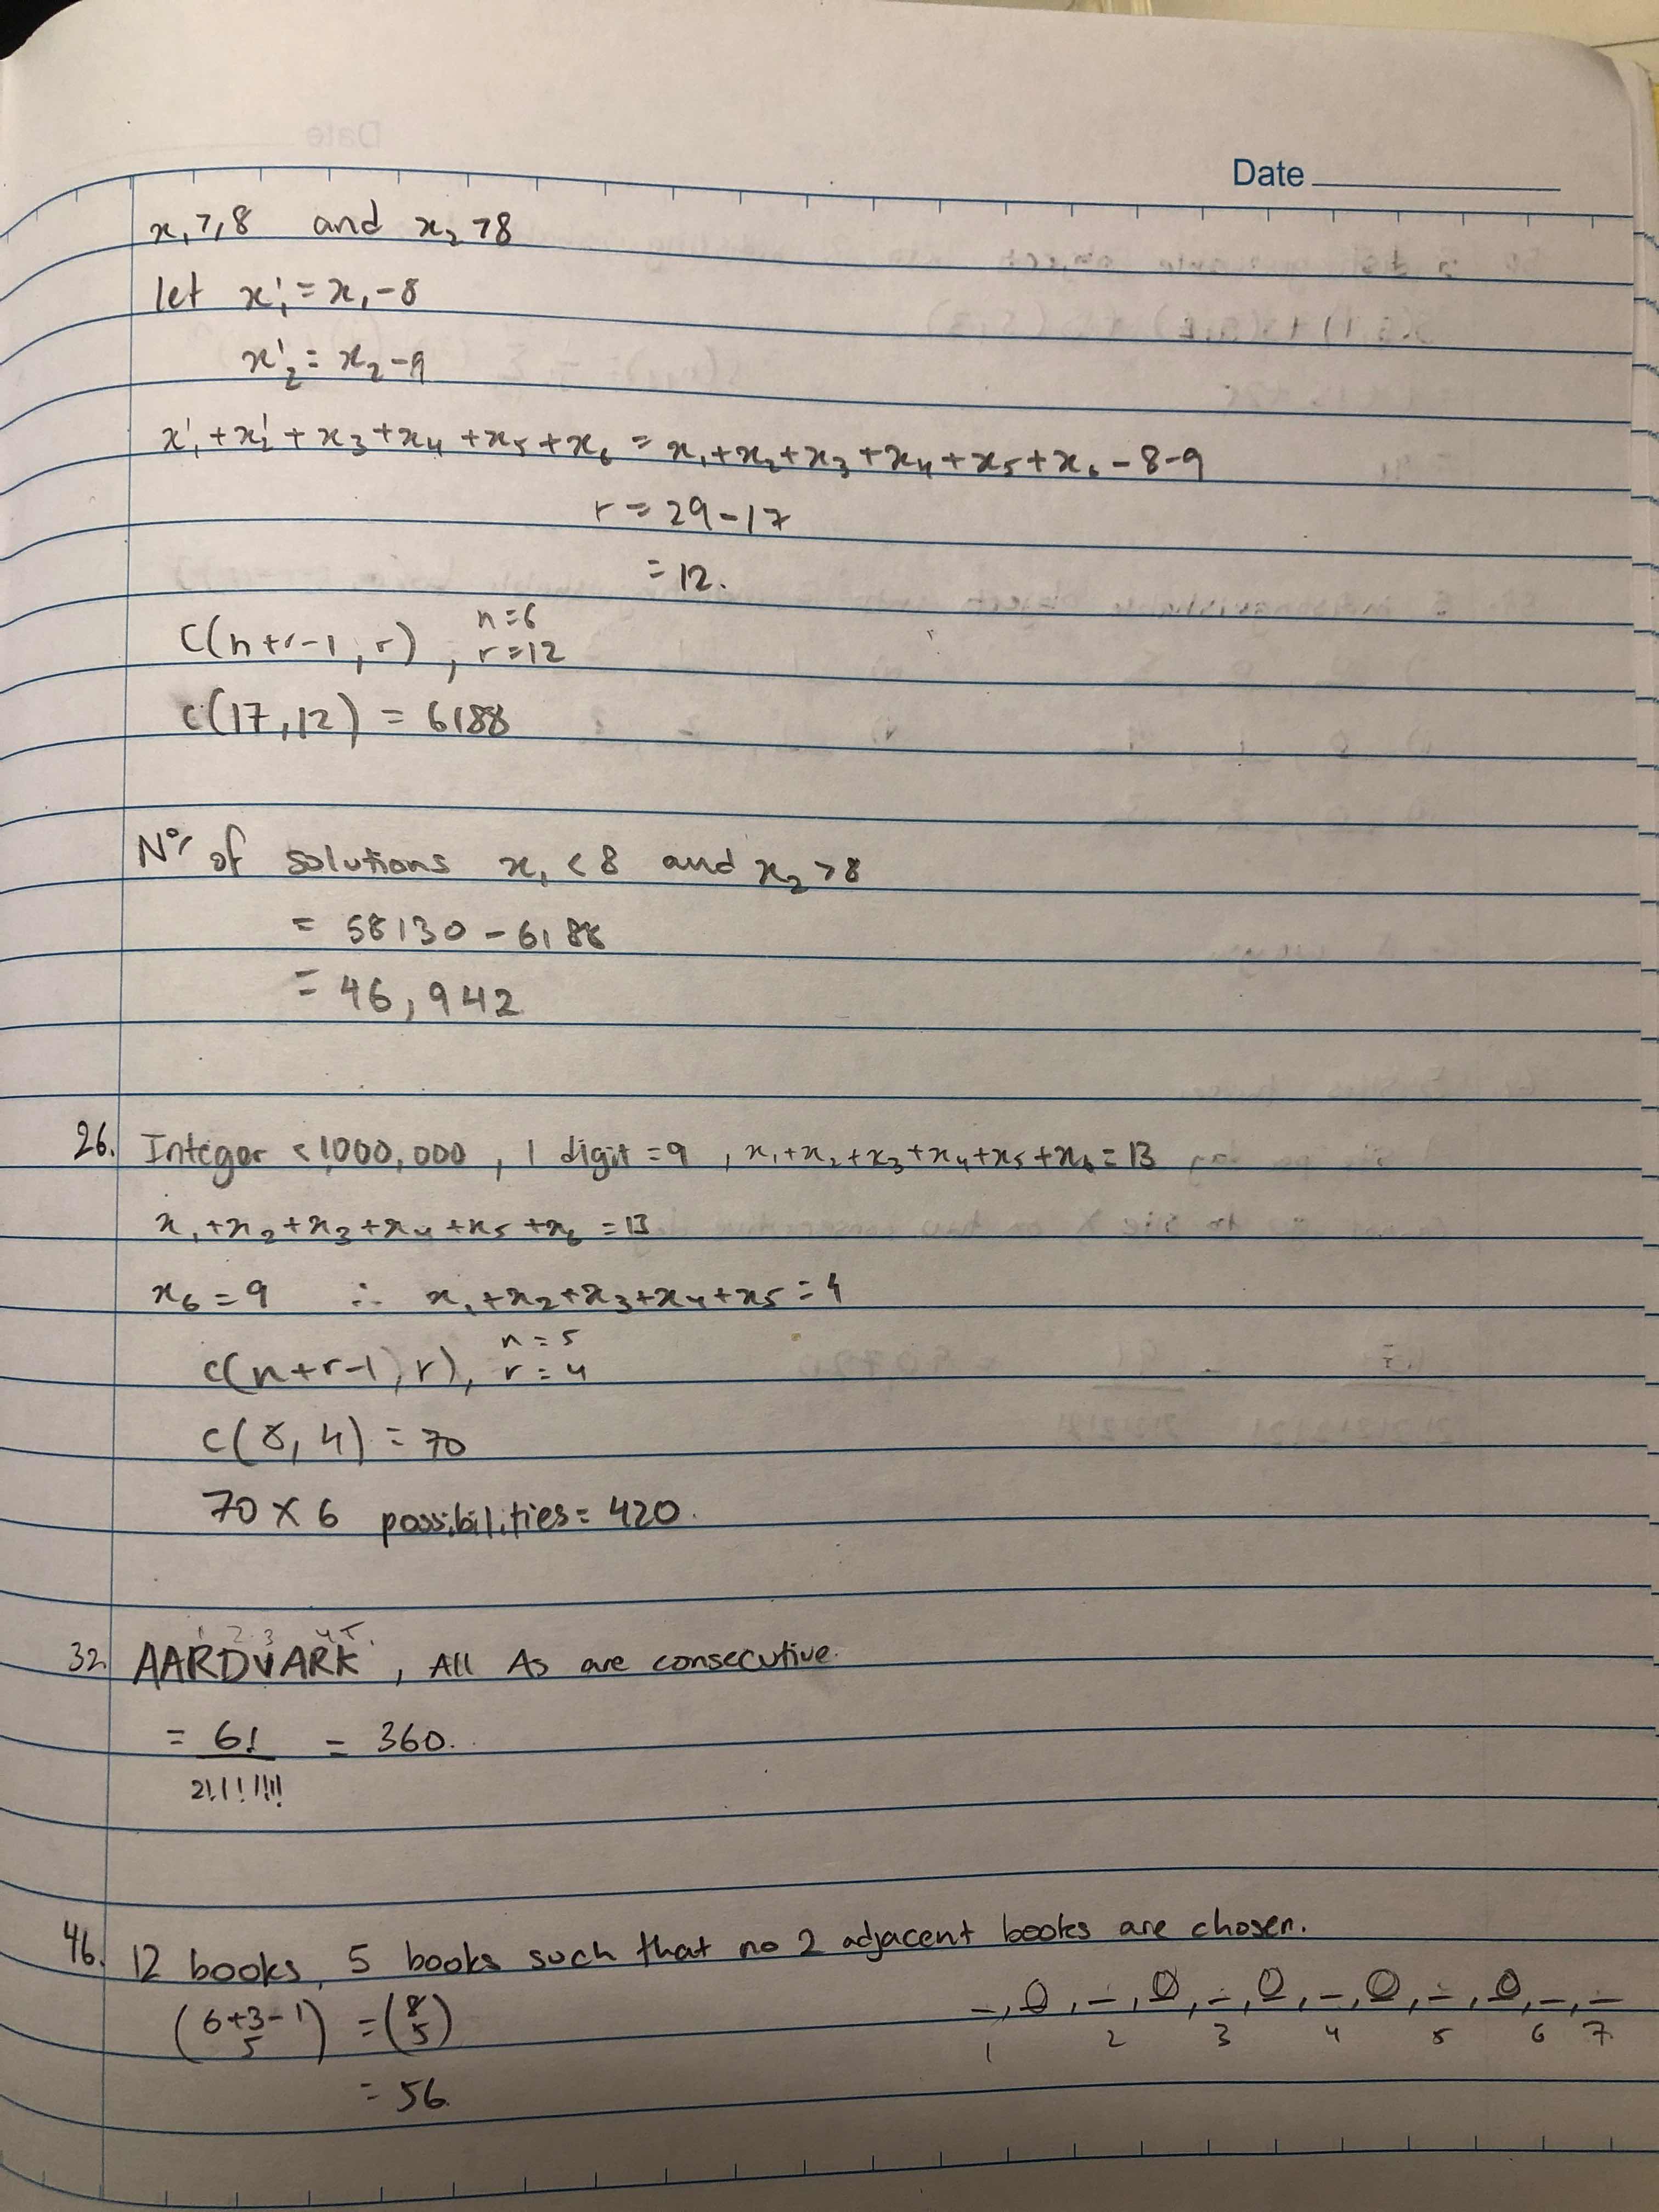 Date
x₁ ⩾ 8 and x₂ > 8
let x₁' = x₁ - 8
x₂' = x₂ - 9
x₁' + x₂' + x₃ + x₄ + x₅ + x₆ = x₁ + x₂ + x₃ + x₄ + x₅ + x₆ - 8 - 9
r = 29 - 17
= 12.
C(n+r-1, r), n=6
r=12
C(17,12) = 6188
Nº of solutions x₁ < 8 and x₂ > 8
= 58130 - 6188
= 46,942
26. Integer < 1000,000, 1 digit = 9, x₁+x₂+x₃+x₄+x₅+x₆ = 13
x₁+x₂+x₃+x₄+x₅+x₆ = 13
x₆ = 9 ∴ x₁+x₂+x₃+x₄+x₅ = 4
C(n+r-1, r), n = 5
r = 4
C(8, 4) = 70
70 × 6 possibilities = 420.
1 2 3 4 5.
32. AARDVARK, All As are consecutive.
= 6! = 360.
2!1!1!1!1!
46. 12 books, 5 books such that no 2 adjacent books are chosen.
(6+3-1 5) = (8 5)
_, 0, _, 0, _, 0, _, 0, _, 0, _, _
1 2 3 4 5 6 7.
= 56